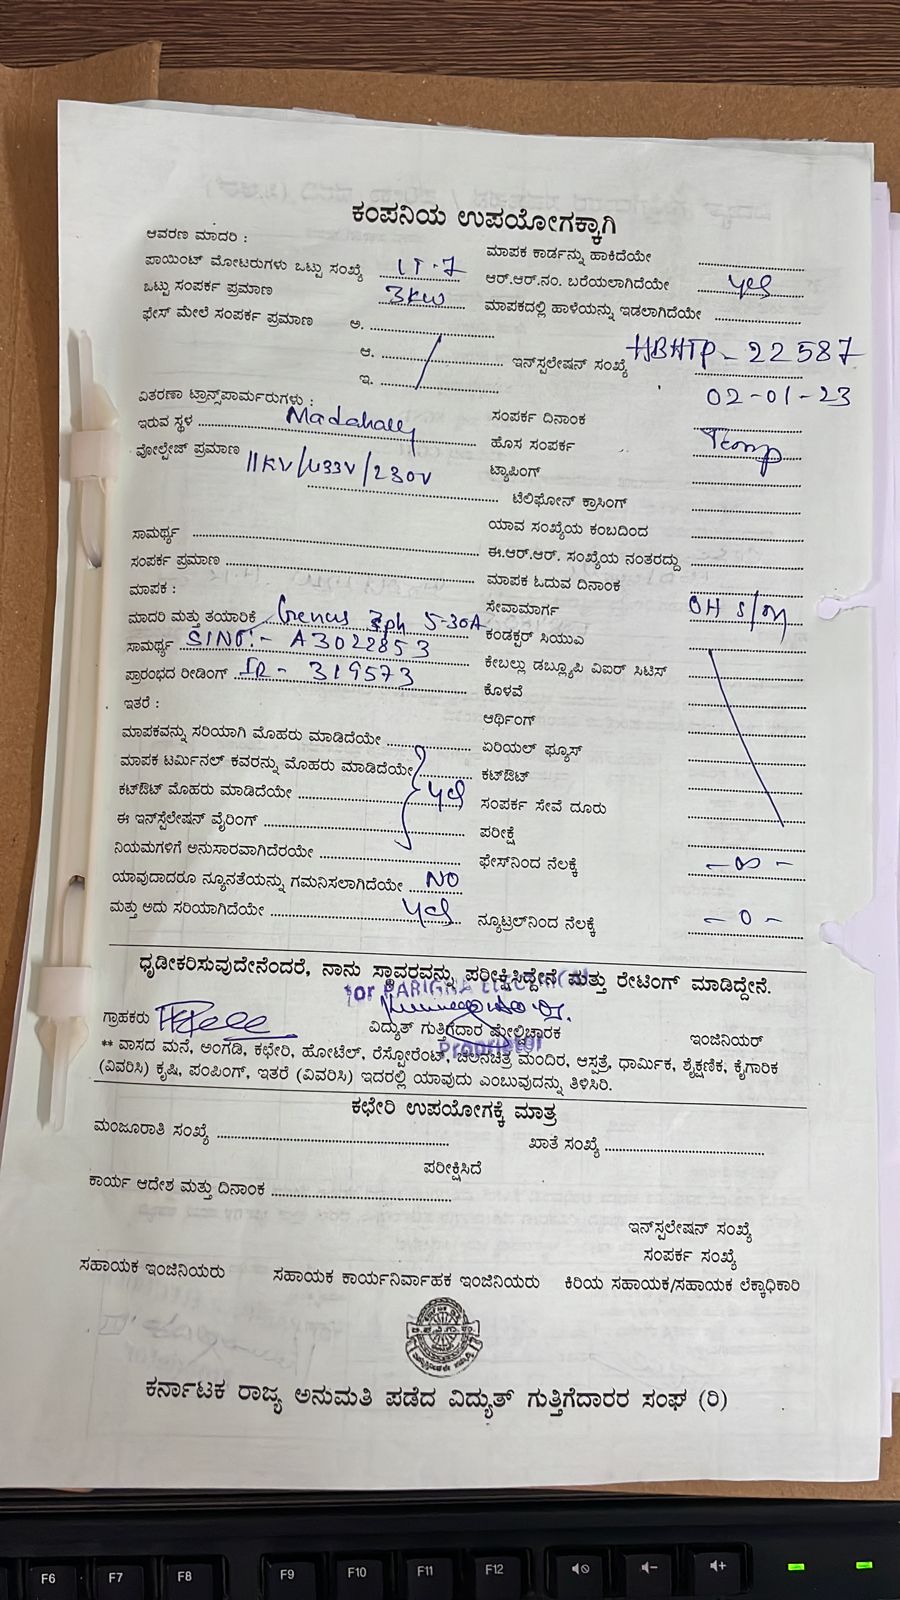 ಕಂಪನಿಯ ಉಪಯೋಗಕ್ಕಾಗಿ
ಆವರಣ ಮಾದರಿ : ಮಾಪಕ ಕಾರ್ಡನ್ನು ಹಾಕಿದೆಯೇ
ಪಾಯಿಂಟ್ ಮೋಟರುಗಳು ಒಟ್ಟು ಸಂಖ್ಯೆ LT-7 ಆರ್.ಆರ್.ನಂ. ಬರೆಯಲಾಗಿದೆಯೇ yes
ಒಟ್ಟು ಸಂಪರ್ಕ ಪ್ರಮಾಣ 3KW ಮಾಪಕದಲ್ಲಿ ಹಾಳೆಯನ್ನು ಇಡಲಾಗಿದೆಯೇ
ಫೇಸ್ ಮೇಲೆ ಸಂಪರ್ಕ ಪ್ರಮಾಣ ಅ.
ಆ. ಇನ್‌ಸ್ಪಲೇಷನ್ ಸಂಖ್ಯೆ HBHTP-22587
ಇ. 02-01-23
ವಿತರಣಾ ಟ್ರಾನ್ಸ್‌ಪಾರ್ಮರುಗಳು : ಸಂಪರ್ಕ ದಿನಾಂಕ
ಇರುವ ಸ್ಥಳ Madahally ಹೊಸ ಸಂಪರ್ಕ Temp
ವೋಲ್ಟೇಜ್ ಪ್ರಮಾಣ 11KV/433V/230V ಟ್ಯಾಪಿಂಗ್
ಟೆಲಿಫೋನ್ ಕ್ರಾಸಿಂಗ್
ಯಾವ ಸಂಖ್ಯೆಯ ಕಂಬದಿಂದ
ಸಾಮರ್ಥ್ಯ ಈ.ಆರ್.ಆರ್. ಸಂಖ್ಯೆಯ ನಂತರದ್ದು
ಸಂಪರ್ಕ ಪ್ರಮಾಣ ಮಾಪಕ ಓದುವ ದಿನಾಂಕ
ಮಾಪಕ : ಸೇವಾಮಾರ್ಗ OH S/M
ಮಾದರಿ ಮತ್ತು ತಯಾರಿಕೆ Genus 3ph 5-30A ಕಂಡಕ್ಟರ್ ಸಿಯುಎ
ಸಾಮರ್ಥ್ಯ SlNo:- A3022853 ಕೇಬಲ್ಲು ಡಬ್ಲ್ಯೂಪಿ ವಿಐರ್ ಸಿಟಿಸ್
ಪ್ರಾರಂಭದ ರೀಡಿಂಗ್ IR - 319573 ಕೊಳವೆ
ಇತರೆ : ಆರ್ಥಿಂಗ್
ಮಾಪಕವನ್ನು ಸರಿಯಾಗಿ ಮೊಹರು ಮಾಡಿದೆಯೇ ಏರಿಯಲ್ ಫ್ಯೂಸ್
ಮಾಪಕ ಟರ್ಮಿನಲ್ ಕವರನ್ನು ಮೊಹರು ಮಾಡಿದೆಯೇ ಕಟ್‌ಔಟ್
ಕಟ್‌ಔಟ್ ಮೊಹರು ಮಾಡಿದೆಯೇ yes ಸಂಪರ್ಕ ಸೇವೆ ದೂರು
ಈ ಇನ್‌ಸ್ಪೆಲೇಷನ್ ವೈರಿಂಗ್ ಪರೀಕ್ಷೆ
ನಿಯಮಗಳಿಗೆ ಅನುಸಾರವಾಗಿದೆರಯೇ ಫೇಸ್‌ನಿಂದ ನೆಲಕ್ಕೆ -∞-
ಯಾವುದಾದರೂ ನ್ಯೂನತೆಯನ್ನು ಗಮನಿಸಲಾಗಿದೆಯೇ NO
ಮತ್ತು ಅದು ಸರಿಯಾಗಿದೆಯೇ yes ನ್ಯೂಟ್ರಲ್‌ನಿಂದ ನೆಲಕ್ಕೆ -0-
ಧೃಡೀಕರಿಸುವುದೇನೆಂದರೆ, ನಾನು ಸ್ಥಾವರವನ್ನು ಪರೀಕ್ಷಿಸಿದ್ದೇನೆ ಮತ್ತು ರೇಟಿಂಗ್ ಮಾಡಿದ್ದೇನೆ.
for
ಗ್ರಾಹಕರು ವಿದ್ಯುತ್ ಗುತ್ತಿಗೆದಾರ ಮೇಲ್ವಿಚಾರಕ ಇಂಜಿನಿಯರ್
Proprietor
** ವಾಸದ ಮನೆ, ಅಂಗಡಿ, ಕಛೇರಿ, ಹೋಟೆಲ್, ರೆಸ್ಟೋರೆಂಟ್, ಚಲನಚಿತ್ರ ಮಂದಿರ, ಆಸ್ಪತ್ರೆ, ಧಾರ್ಮಿಕ, ಶೈಕ್ಷಣಿಕ, ಕೈಗಾರಿಕ
(ವಿವರಿಸಿ) ಕೃಷಿ, ಪಂಪಿಂಗ್, ಇತರೆ (ವಿವರಿಸಿ) ಇದರಲ್ಲಿ ಯಾವುದು ಎಂಬುವುದನ್ನು ತಿಳಿಸಿರಿ.
ಕಛೇರಿ ಉಪಯೋಗಕ್ಕೆ ಮಾತ್ರ
ಮಂಜೂರಾತಿ ಸಂಖ್ಯೆ ಖಾತೆ ಸಂಖ್ಯೆ
ಪರೀಕ್ಷಿಸಿದೆ
ಕಾರ್ಯ ಆದೇಶ ಮತ್ತು ದಿನಾಂಕ
ಇನ್‌ಸ್ಪಲೇಷನ್ ಸಂಖ್ಯೆ
ಸಂಪರ್ಕ ಸಂಖ್ಯೆ
ಸಹಾಯಕ ಇಂಜಿನಿಯರು ಸಹಾಯಕ ಕಾರ್ಯನಿರ್ವಾಹಕ ಇಂಜಿನಿಯರು ಕಿರಿಯ ಸಹಾಯಕ/ಸಹಾಯಕ ಲೆಕ್ಕಾಧಿಕಾರಿ
ಕರ್ನಾಟಕ ರಾಜ್ಯ ಅನುಮತಿ ಪಡೆದ ವಿದ್ಯುತ್ ಗುತ್ತಿಗೆದಾರರ ಸಂಘ (ರಿ)
F6 F7 F8 F9 F10 F11 F12